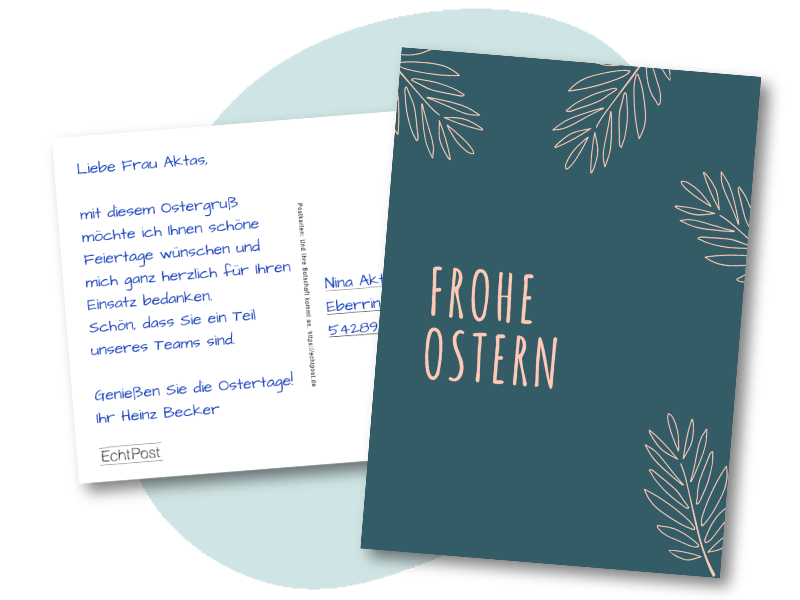 Liebe Frau Aktas,
mit diesem Ostergruß
möchte ich Ihnen schöne
Feiertage wünschen und
mich ganz herzlich für Ihren
Einsatz bedanken.
Schön, dass Sie ein Teil
unseres Teams sind.
Genießen Sie die Ostertage!
Ihr Heinz Becker
EchtPost
Postkarten: Und Ihre Botschaft kommt an. https://echtpost.de
Nina
54289
FROHE
OSTERN